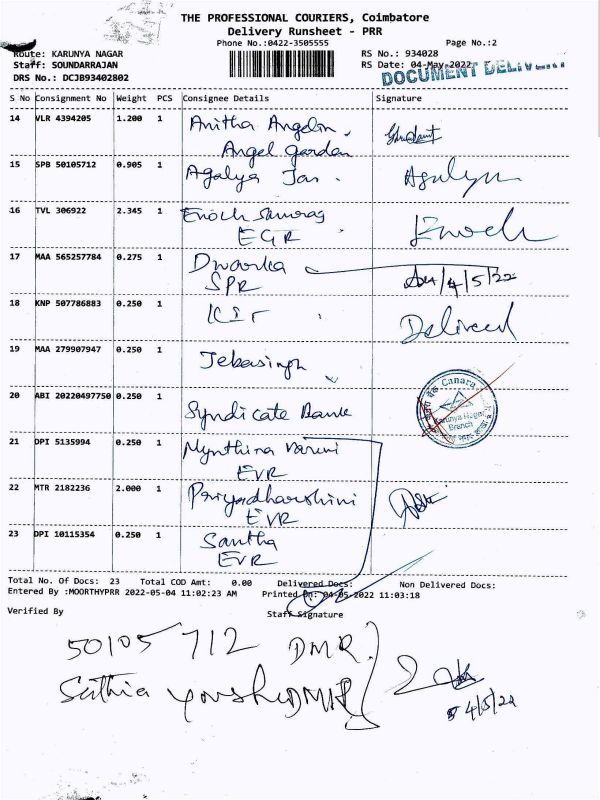 THE PROFESSIONAL COURIERS, Coimbatore
Delivery Runsheet - PRR
Phone No.:0422-3505555
Page No.:2
Route: KARUNYA NAGAR
RS No.: 934028
Staff: SOUNDARRAJAN
RS Date: 04-May-2022
DRS No.: DCJB93402802
DOCUMENT DELIVERY
S No Consignment No Weight PCS Consignee Details Signature
14 VLR 4394205 1.200 1 Anitha Angelin,
Angel garden
15 SPB 50105712 0.905 1 Agalya Jas. Agalya
16 TVL 306922 2.345 1 Enoch Samraj Enoch
EGR
17 MAA 565257784 0.275 1 Dwarka 4/5/22
SPR
18 KNP 507786883 0.250 1 Delivered
19 MAA 279907947 0.250 1 Jebasingh
20 ABI 20220497750 0.250 1 Syndicate Bank
Canara
Karunya Nagar
Branch
21 DPI 5135994 0.250 1
EVR
22 MTR 2182236 2.000 1 Priyadharshini
EVR
23 DPI 10115354 0.250 1 Santha
EVR
Total No. Of Docs: 23 Total COD Amt: 0.00 Delivered Docs: Non Delivered Docs:
Entered By :MOORTHYPRR 2022-05-04 11:02:23 AM Printed On: 04-05-2022 11:03:18
Verified By
Staff Signature
50105712 DMR
4/5/22